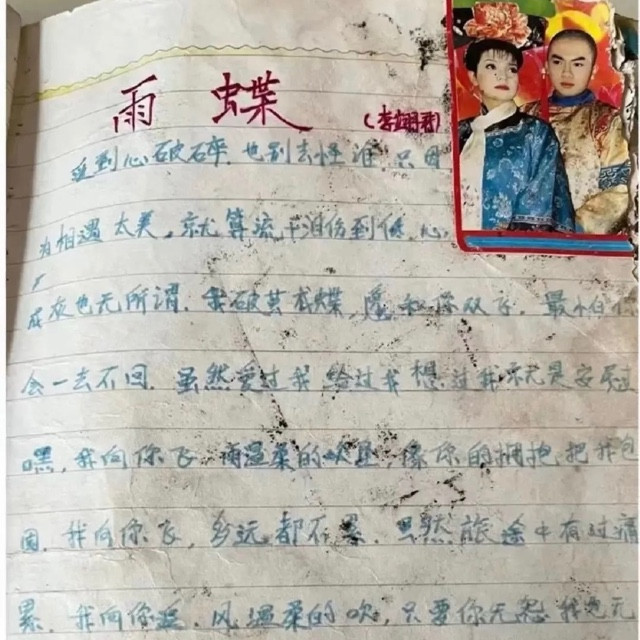 雨 蝶 (李翊君)
到心破碎.也别去怪谁.只因
为相遇太美,就算流干泪伤到低,心
成灰也无所谓.我破茧成蝶,愿和你双飞.最怕你
会一去不回.虽然爱过我 给过我 想过我就是安慰
嘿,我向你飞 雨温柔的坠,像你的拥抱把我包
围.我向你飞,多远都不累.虽然旅途中有过痛
累.我向你追.风温柔的吹,只要你无怨 我也无